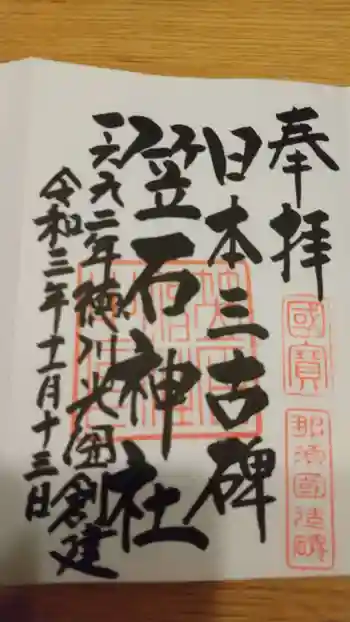 奉拝
國寳
那須國造碑
日本三古碑
笠石神社
一六九二年徳川光圀創建
令和三年十一月十三日